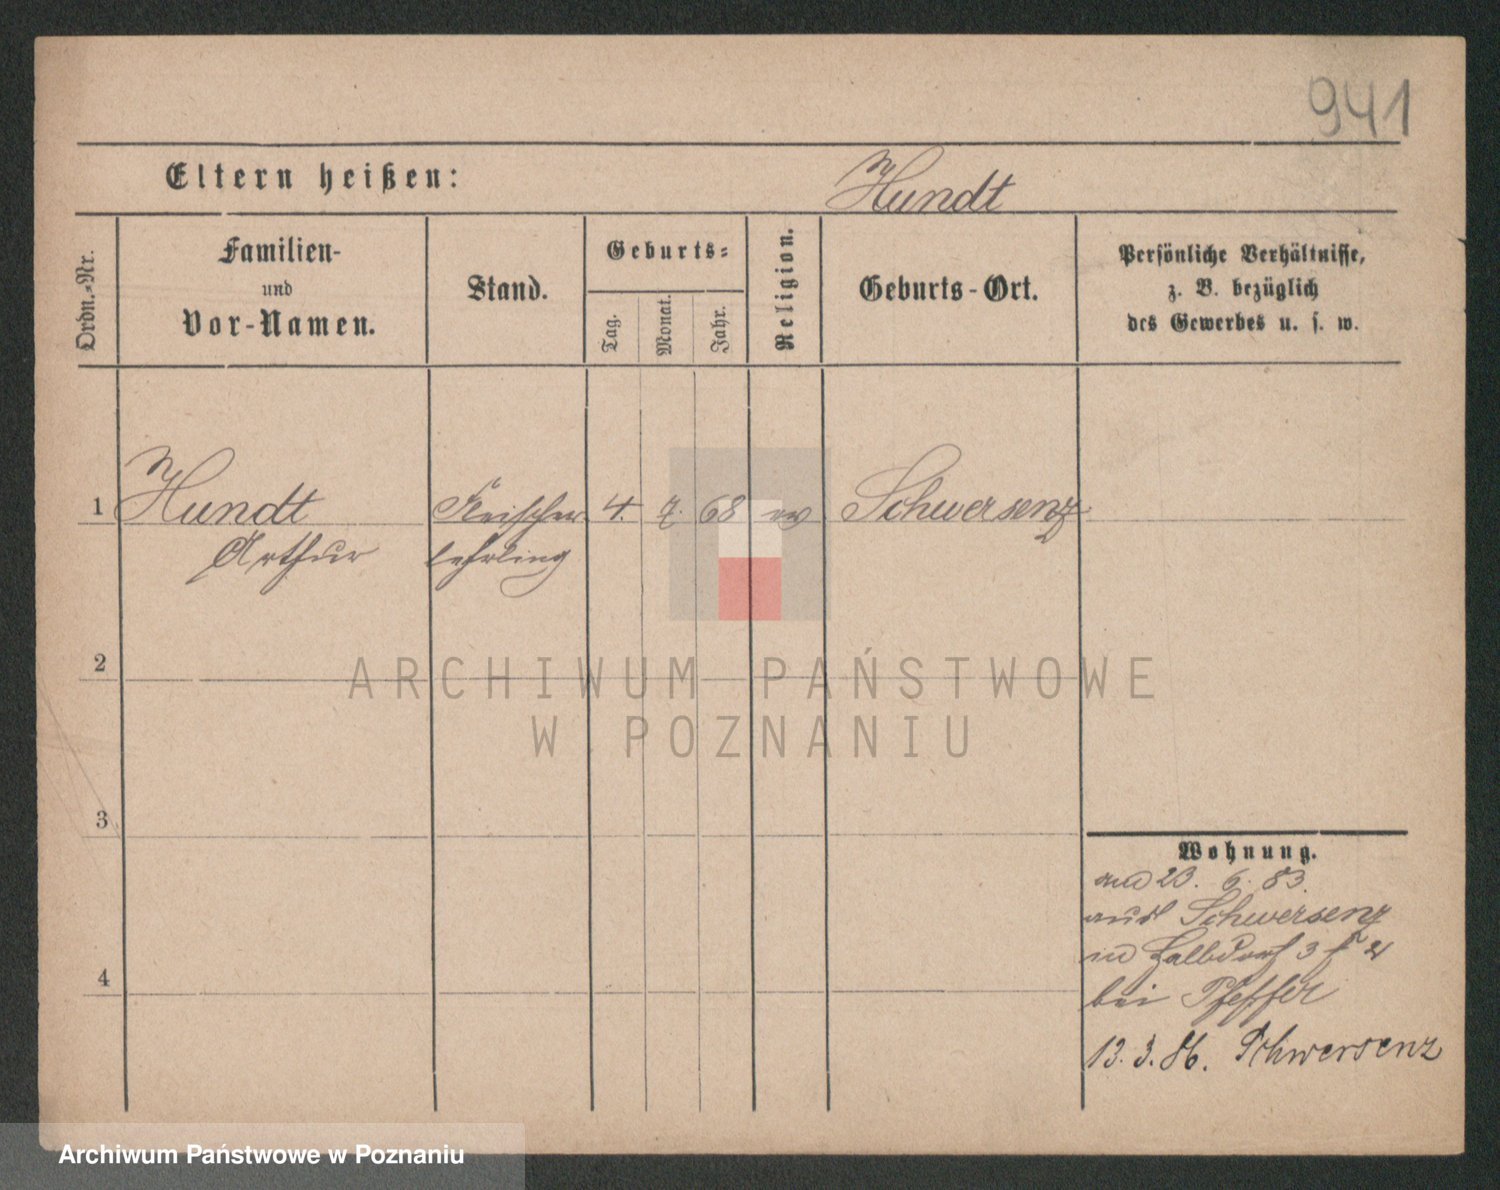 941
Eltern heißen: Hundt
Ordn.-Nr.
Familien-
und
Vor-Namen.
Stand.
Geburts-
Tag.
Monat.
Jahr.
Religion.
Geburts-Ort.
Persönliche Verhältnisse,
z. B. bezüglich
des Gewerbes u. s. w.
1 Hundt Fleischer 4. 7. 68 ev Schwersenz
Arthur lehrling
2
3
4
Wohnung.
23. 6. 83.
aus Schwersenz
in Halbdorf 3
bei Pfeffer
13. 3. 86. Schwersenz
ARCHIWUM PAŃSTWOWE
W POZNANIU
Archiwum Państwowe w Poznaniu